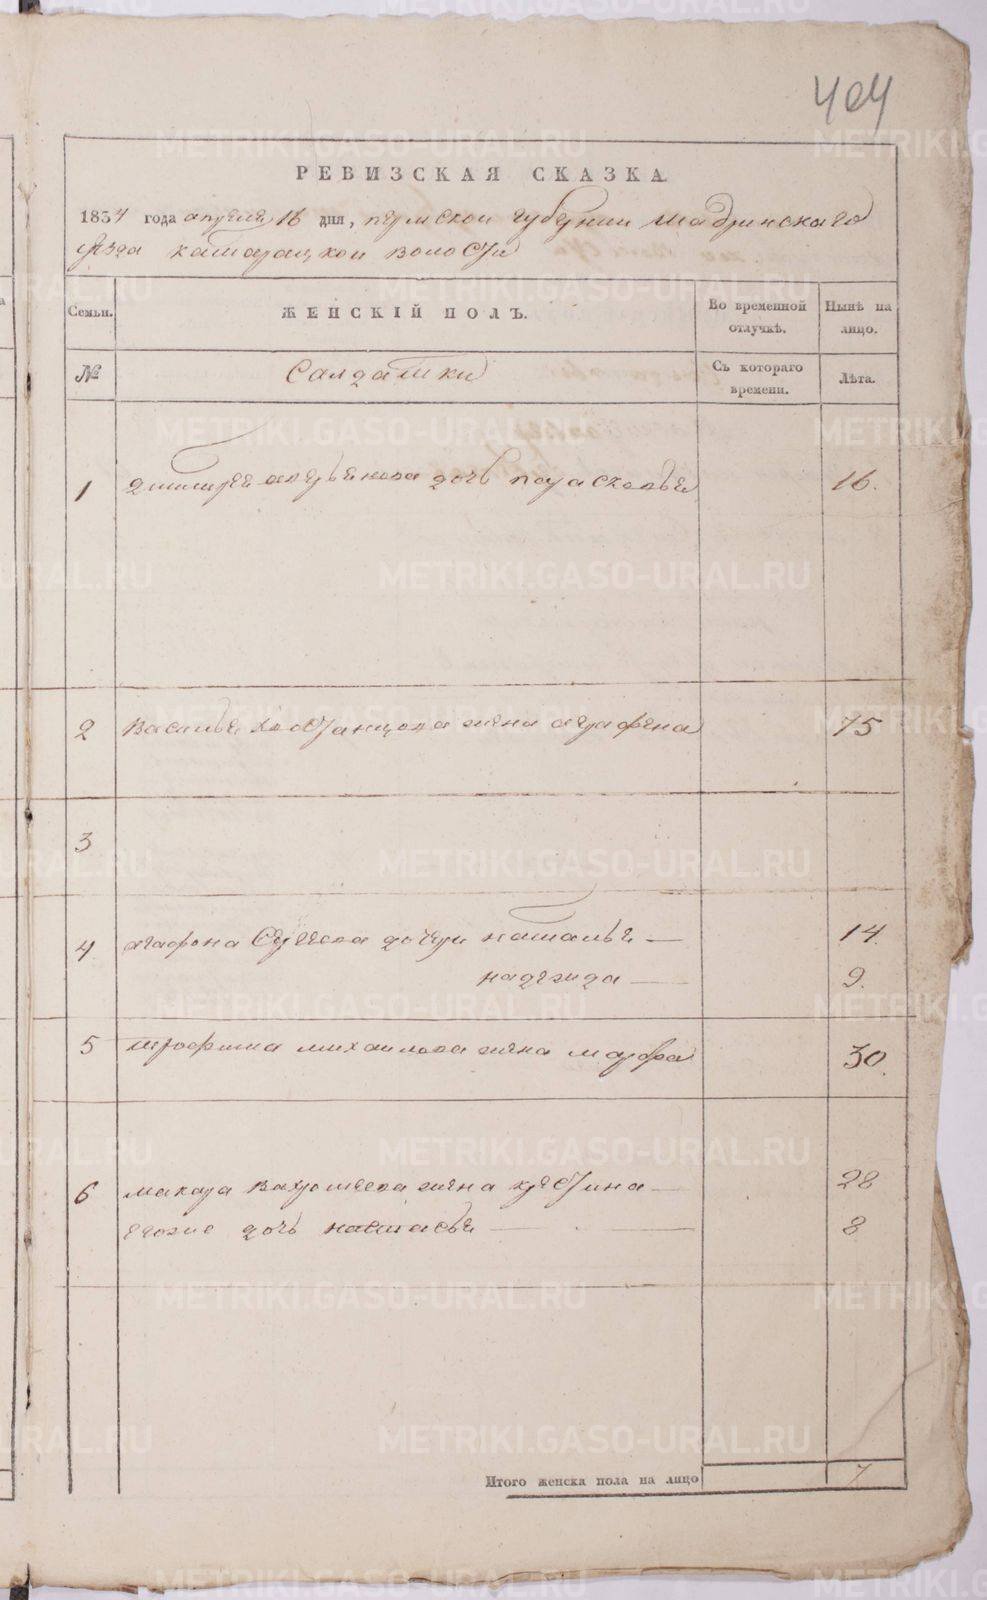 404
РЕВИЗСКАЯ СКАЗКА
1834 года апреля 16 дня, пермской губернии шадринскаго
уезда катарацкой волости
Семьи. ЖЕНСКІЙ ПОЛЪ. Во временной отлучкѣ. Нынѣ на лицо.
№ Салдатки Съ котораго времени. Лѣта.
1 дмитрея дочь парасковья 16.
2 Василья жена аграфена 75
3
4 агафона дочери наталья — 14.
надежда — 9.
5 трофима михаилова жена марфа 30.
6 макара вахромеева жена крестина — 28
дочь настасья — 8
Итого женска пола на лицо 7
METRIKI.GASO-URAL.RU